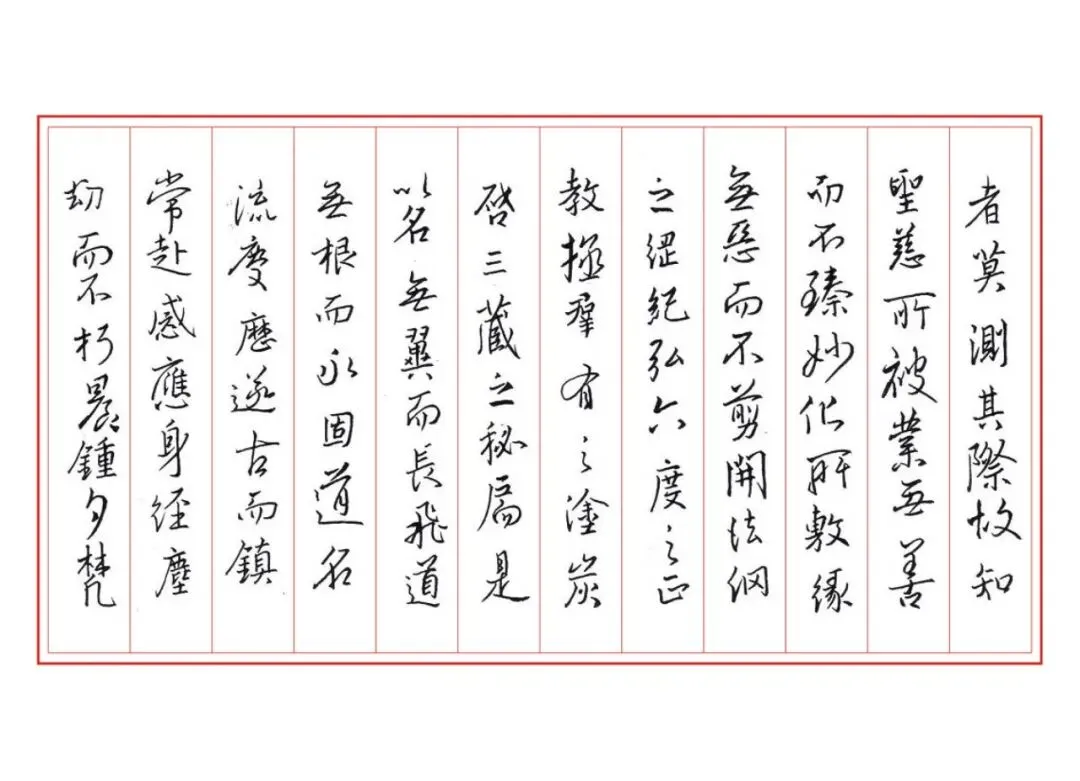 者莫測其際故知
聖慈所被業無善
而不臻妙化所敷緣
無惡而不剪開法網
之綱紀弘六度之正
教拯羣有之塗炭
啓三藏之秘扃是
以名無翼而長飛道
無根而永固道名
流慶歷遂古而鎮
常赴感應身經塵
劫而不朽晨鍾夕梵